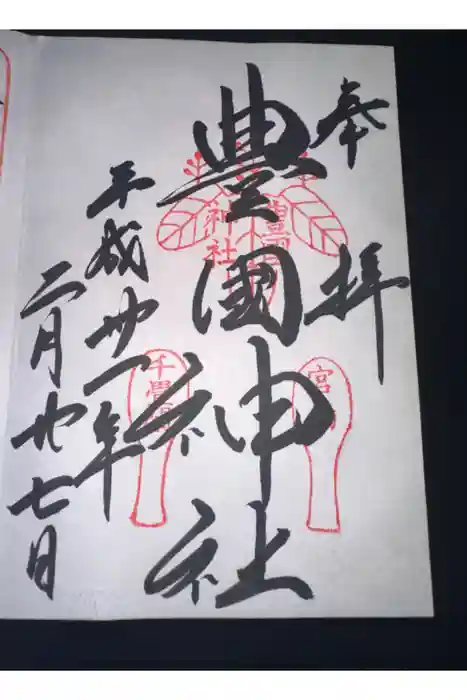 奉拝
豊國神社
平成卅一年
二月廿七日
神社
千畳
宮